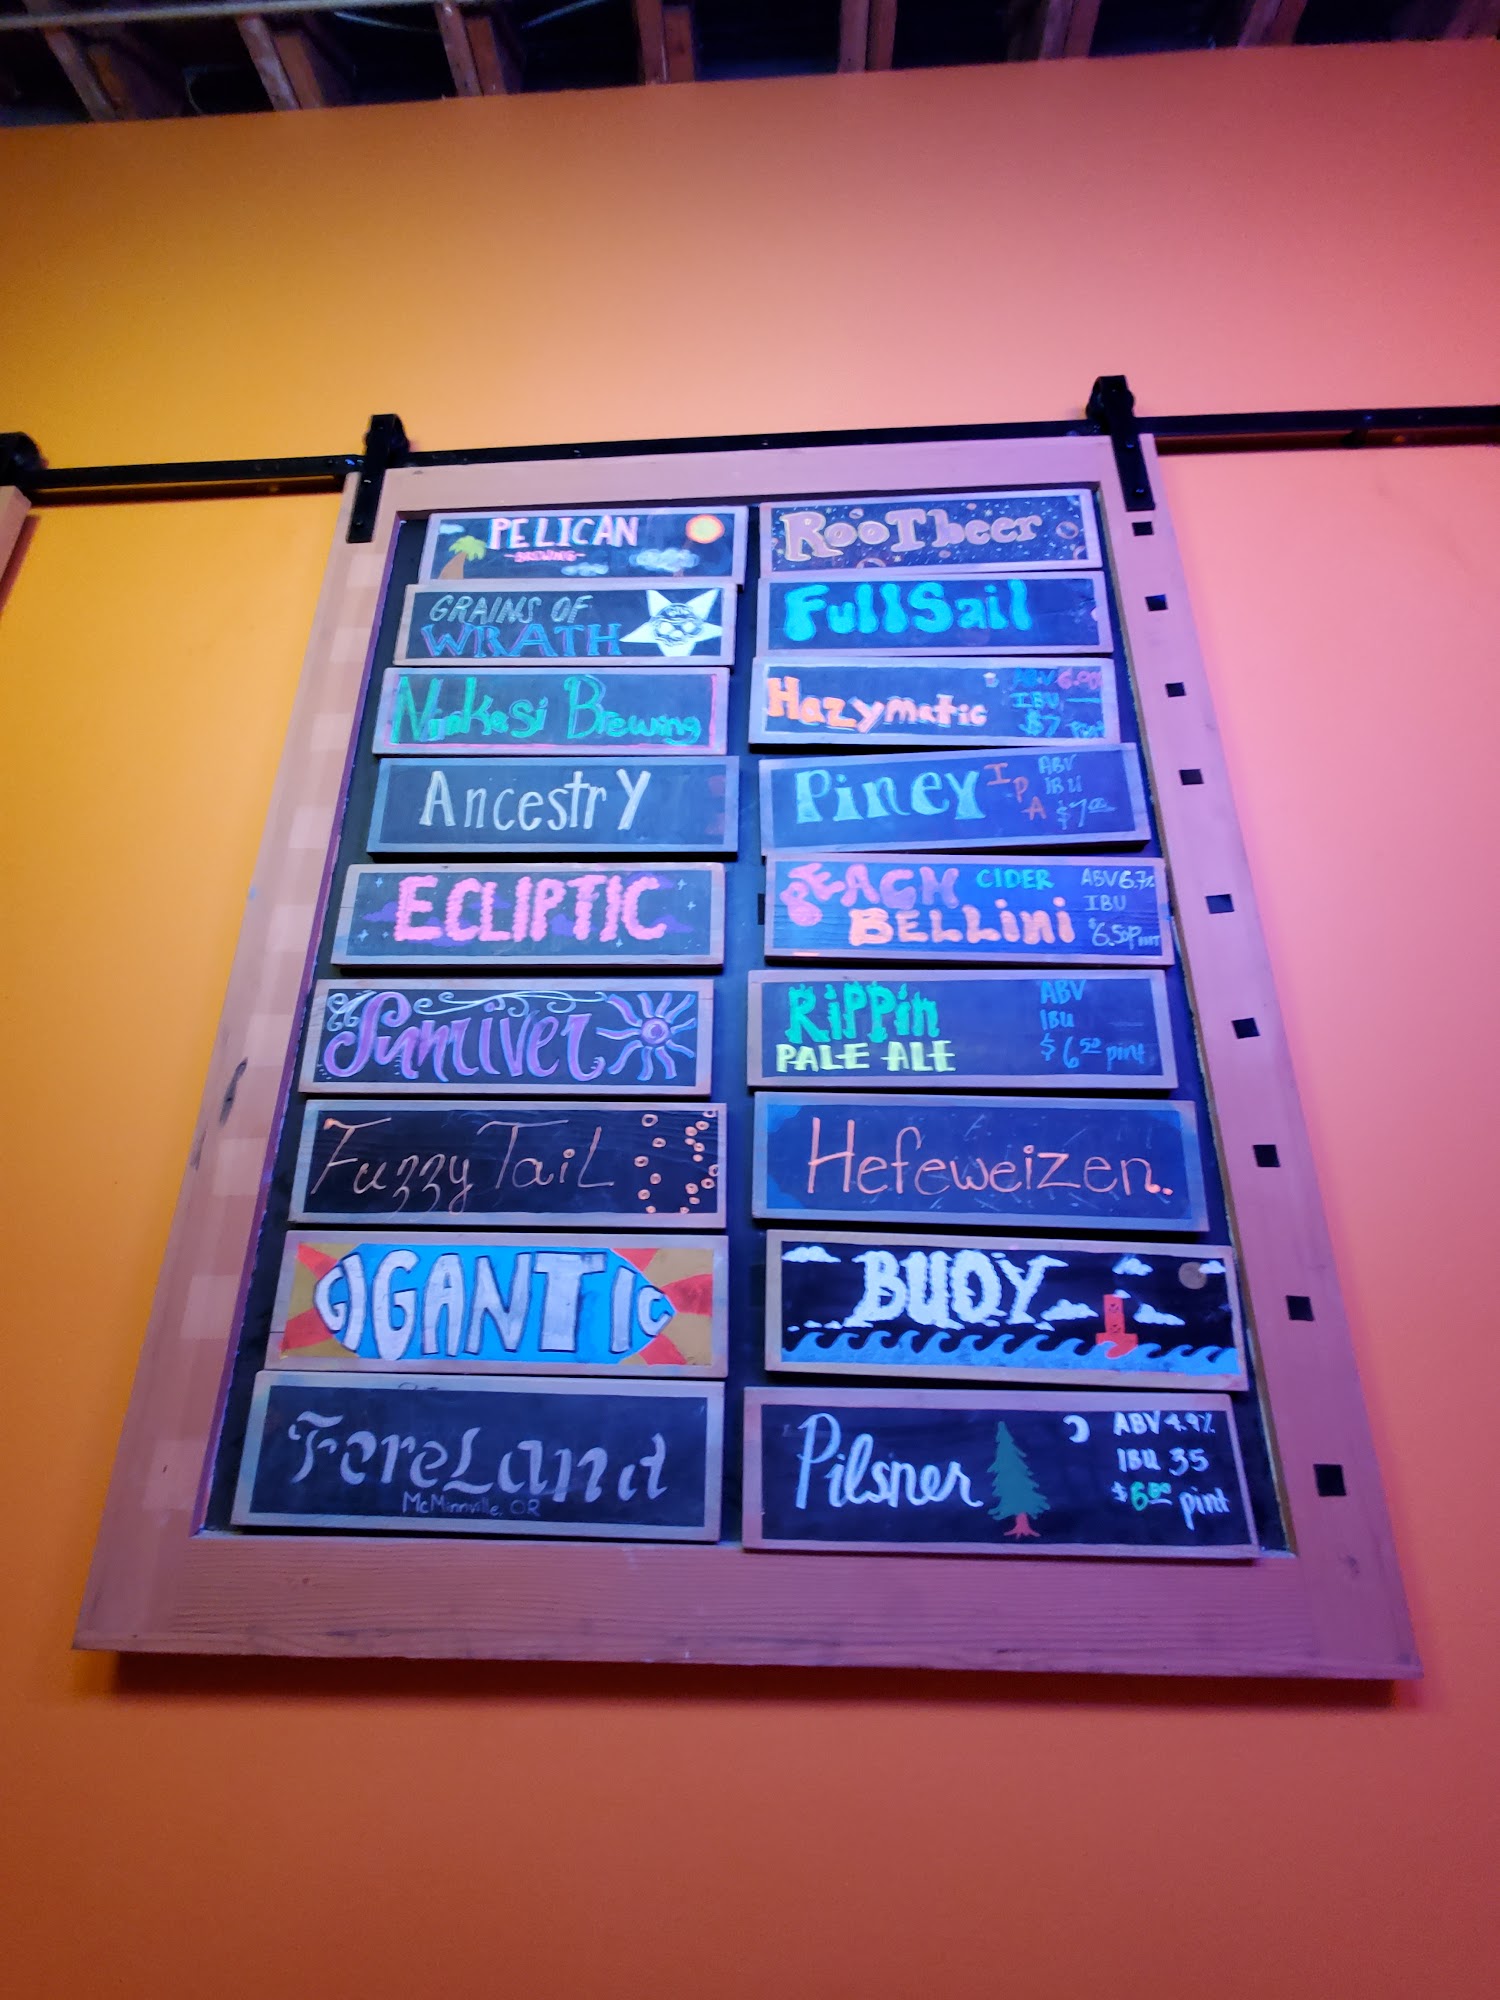 PELICAN
~BREWING~
GRAINS OF
WRATH
Ninkasi Brewing
Ancestry
ECLIPTIC
Sunriver
Fuzzy Tail
GIGANTIC
ForeLand
McMinnville, OR
RooT beer
Full Sail
Hazymatic
ABV 6.00
IBU
$7 Pint
Piney IPA
ABV
IBU
$7.00
PEACH CIDER
BELLini
ABV 6.7%
IBU
$6.50 Pint
RiPPin
PALE ALE
ABV
IBU
$6.50 pint
Hefeweizen.
BUOY
Pilsner
ABV 4.9%
IBU 35
$6.00 pint